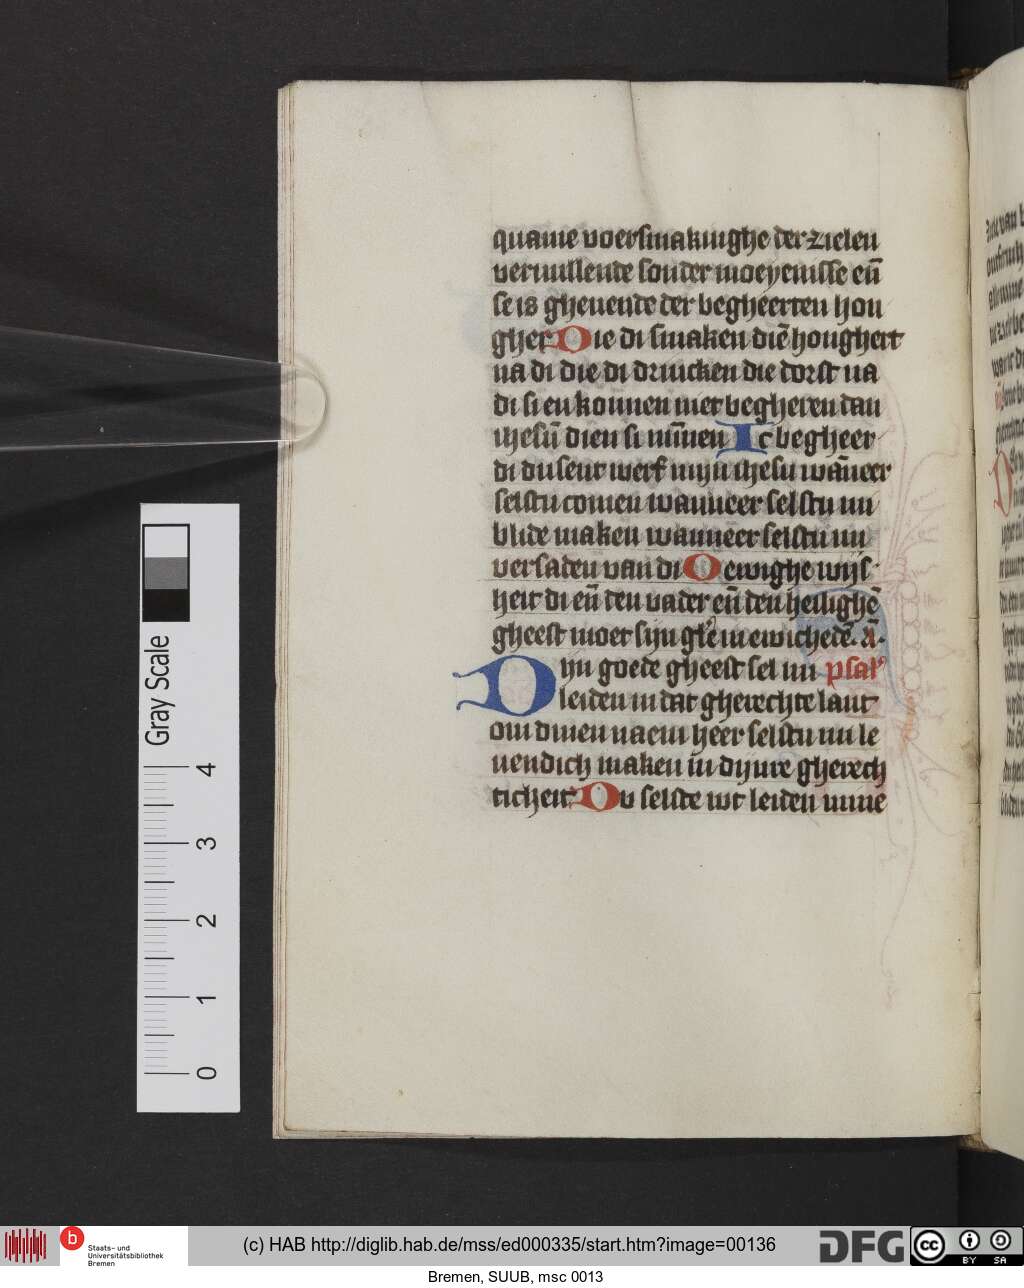 quame voersmakinghe der zielen
veruullende sonder moeyenisse eñ
se is gheuende der begheerten hon
gher Die di smaken diē honghert
na di die di drincken die dorst na
di si en konnen niet begheren dan
ihesū dien si mīnen Ic begheer
di dusent werf mijn ihesu wāneer
selstu comen wanneer selstu mi
blide maken wanneer selstu mi
versaden van di O ewighe wijs
heit di eñ den vader eñ den heilighē
gheest moet sijn gl'e in ewichedē. ā.
Dijn goede gheest sel mi psal'
leiden in dat gherechte lant
om dinen naem heer selstu mi le
uendich maken in dijnre gherech
ticheit Du selste wt leiden mine
Gray Scale
4
3
2
1
0
b
Staats- und
Universitätsbibliothek
Bremen
(c) HAB http://diglib.hab.de/mss/ed000335/start.htm?image=00136
DFG
cc
BY SA
Bremen, SUUB, msc 0013